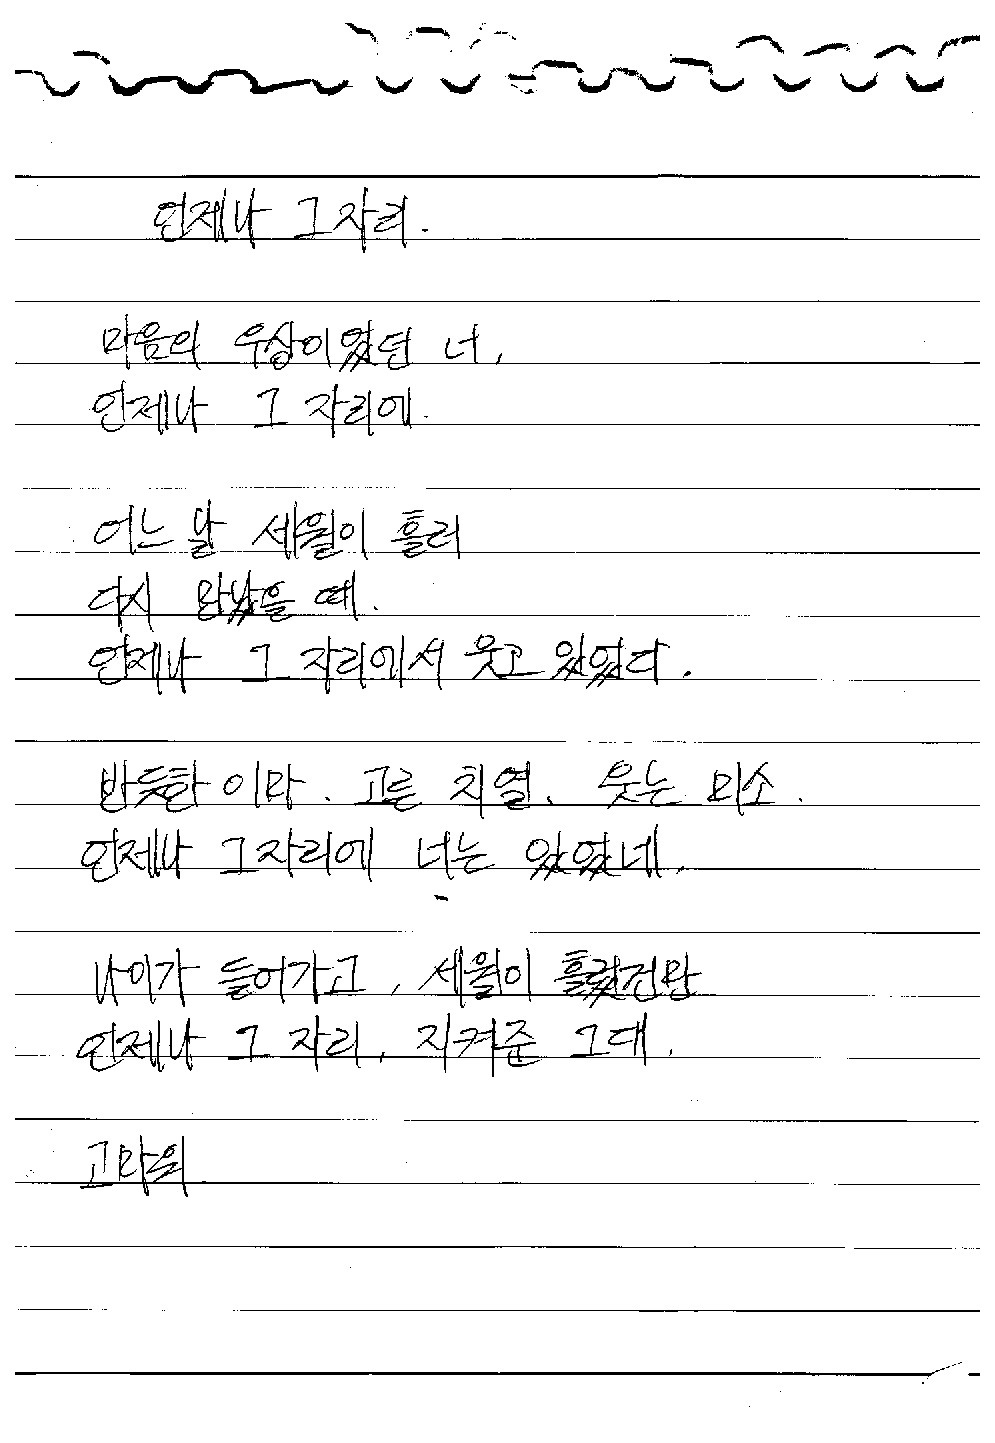 언제나 그 자리.
마음의 우상이었던 너,
언제나 그 자리에.
어느 날 세월이 흘러
다시 만났을 때.
언제나 그 자리에서 웃고 있었다.
반듯한 이마. 고른 치열. 웃는 미소.
언제나 그 자리에 너는 있었네.
나이가 들어가고, 세월이 흘렀건만
언제나 그 자리, 지켜준 그대.
고마워